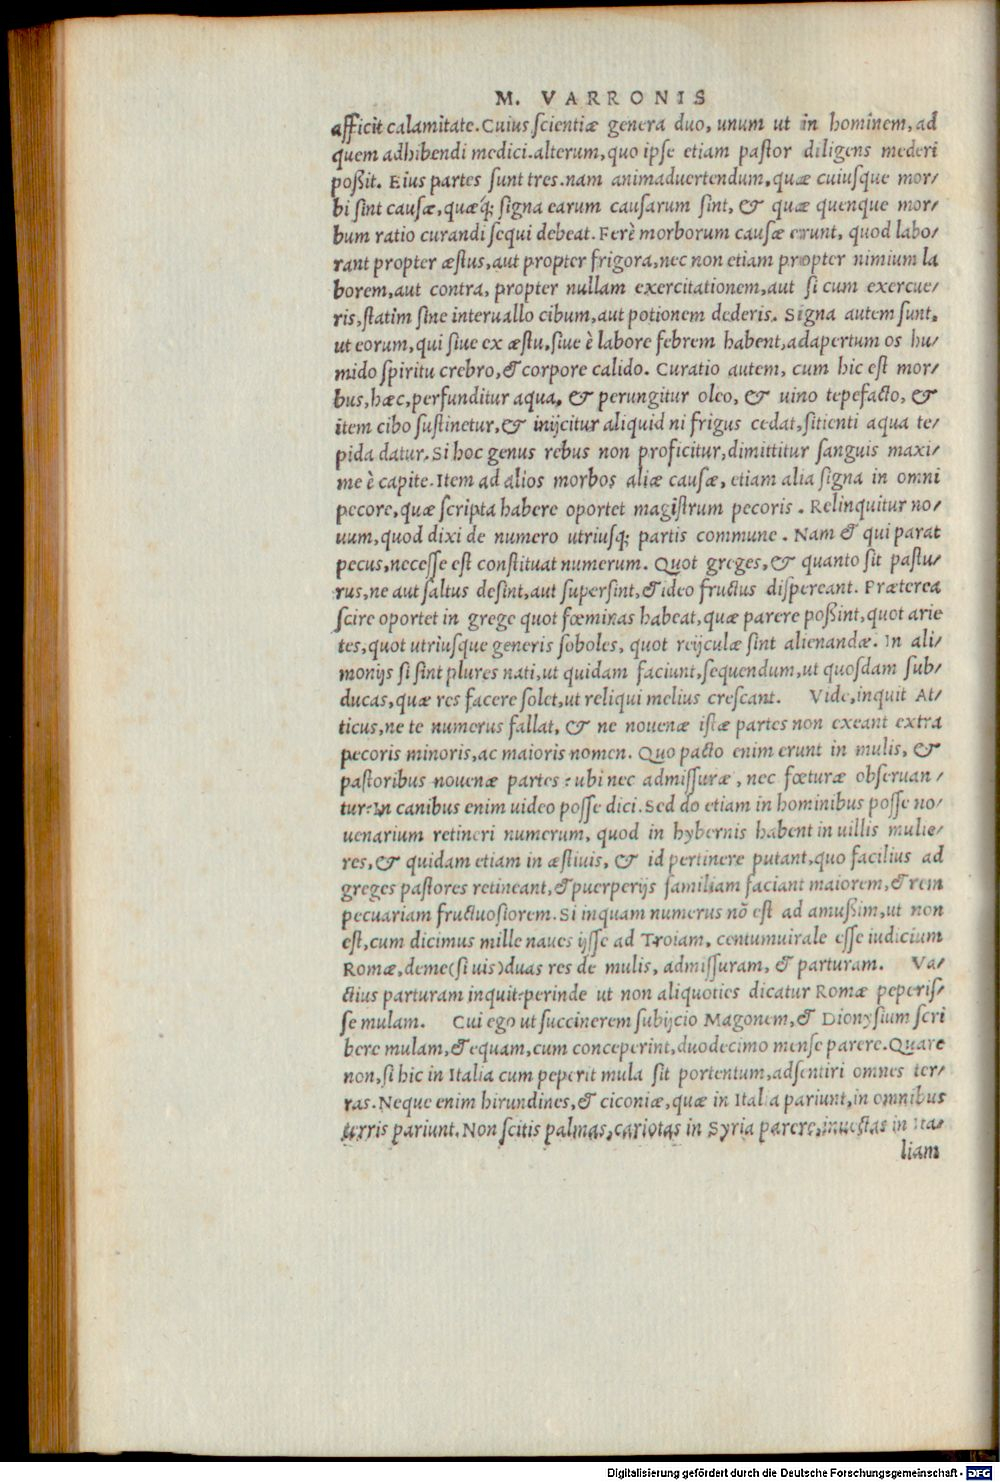 M. VARRONIS
afficit calamitate. Cuius scientiæ genera duo, unum ut in hominem, ad
quem adhibendi medici. alterum, quo ipse etiam pastor diligens mederi
poßit. Eius partes sunt tres. nam animaduertendum, quæ cuiusque mor/
bi sint causæ, quæq́; signa earum causarum sint, & quæ quenque mor/
bum ratio curandi sequi debeat. Ferè morborum causæ erunt, quod labo/
rant propter æstus, aut propter frigora, nec non etiam propter nimium la
borem, aut contra, propter nullam exercitationem, aut si cum exercue/
ris, statim sine interuallo cibum, aut potionem dederis. Signa autem sunt,
ut eorum, qui siue ex æstu, siue è labore febrem habent, adapertum os hu/
mido spiritu crebro, & corpore calido. Curatio autem, cum hic est mor/
bus, hæc, perfunditur aqua, & perungitur oleo, & uino tepefacto, &
item cibo sustinetur, & inijcitur aliquid ni frigus cedat, sitienti aqua te/
pida datur. Si hoc genus rebus non proficitur, dimittitur sanguis maxi/
me è capite. Item ad alios morbos aliæ causæ, etiam alia signa in omni
pecore, quæ scripta habere oportet magistrum pecoris. Relinquitur no/
uum, quod dixi de numero utriusq; partis commune. Nam & qui parat
pecus, necesse est constituat numerum. Quot greges, & quanto sit pastu/
rus, ne aut saltus desint, aut supersint, & ideo fructus dispereant. Præterea
scire oportet in grege quot fœminas habeat, quæ parere poßint, quot arie
tes, quot utriusque generis soboles, quot reijculæ sint alienandæ. In ali/
monijs si sint plures nati, ut quidam faciunt, sequendum, ut quosdam sub/
ducas, quæ res facere solet, ut reliqui melius crescant. Vide, inquit At/
ticus, ne te numerus fallat, & ne nouenæ istæ partes non exeant extra
pecoris minoris, ac maioris nomen. Quo pacto enim erunt in mulis, &
pastoribus nouenæ partes: ubi nec admissuræ, nec fœturæ obseruan/
tur? In canibus enim uideo posse dici. Sed do etiam in hominibus posse no/
uenarium retineri numerum, quod in hybernis habent in uillis mulie/
res, & quidam etiam in æstiuis, & id pertinere putant, quo facilius ad
greges pastores retineant, & puerperijs familiam faciant maiorem, & rem
pecuariam fructuosiorem. Si inquam numerus nõ est ad amußim, ut non
est, cum dicimus mille naues ijsse ad Troiam, centumuirale esse iudicium
Romæ, deme (si uis) duas res de mulis, admissuram, & parturam. Va/
ctius parturam inquit? perinde ut non aliquoties dicatur Romæ peperis/
se mulam. Cui ego ut succinerem subijcio Magonem, & Dionysium scri
bere mulam, & equam, cum conceperint, duodecimo mense parere. Quare
non, si hic in Italia cum peperit mula sit portentum, adsentiri omnes ter/
ras. Neque enim hirundines, & ciconiæ, quæ in Italia pariunt, in omnibus
terris pariunt. Non scitis palmas, cariotas in Syria parere, inuectas in Ita/
liam
Digitalisierung gefördert durch die Deutsche Forschungsgemeinschaft - DFG